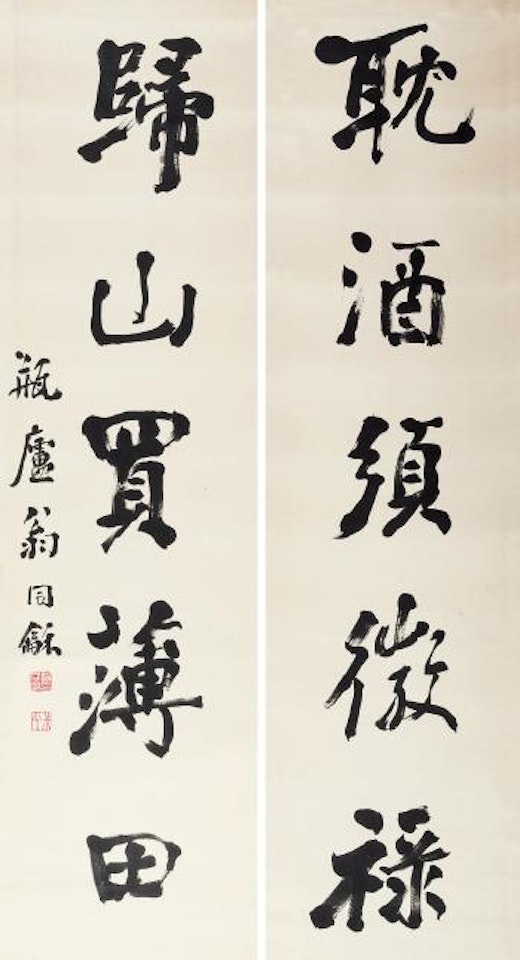 耽酒須微祿
歸山買薄田
瓶廬翁同龢